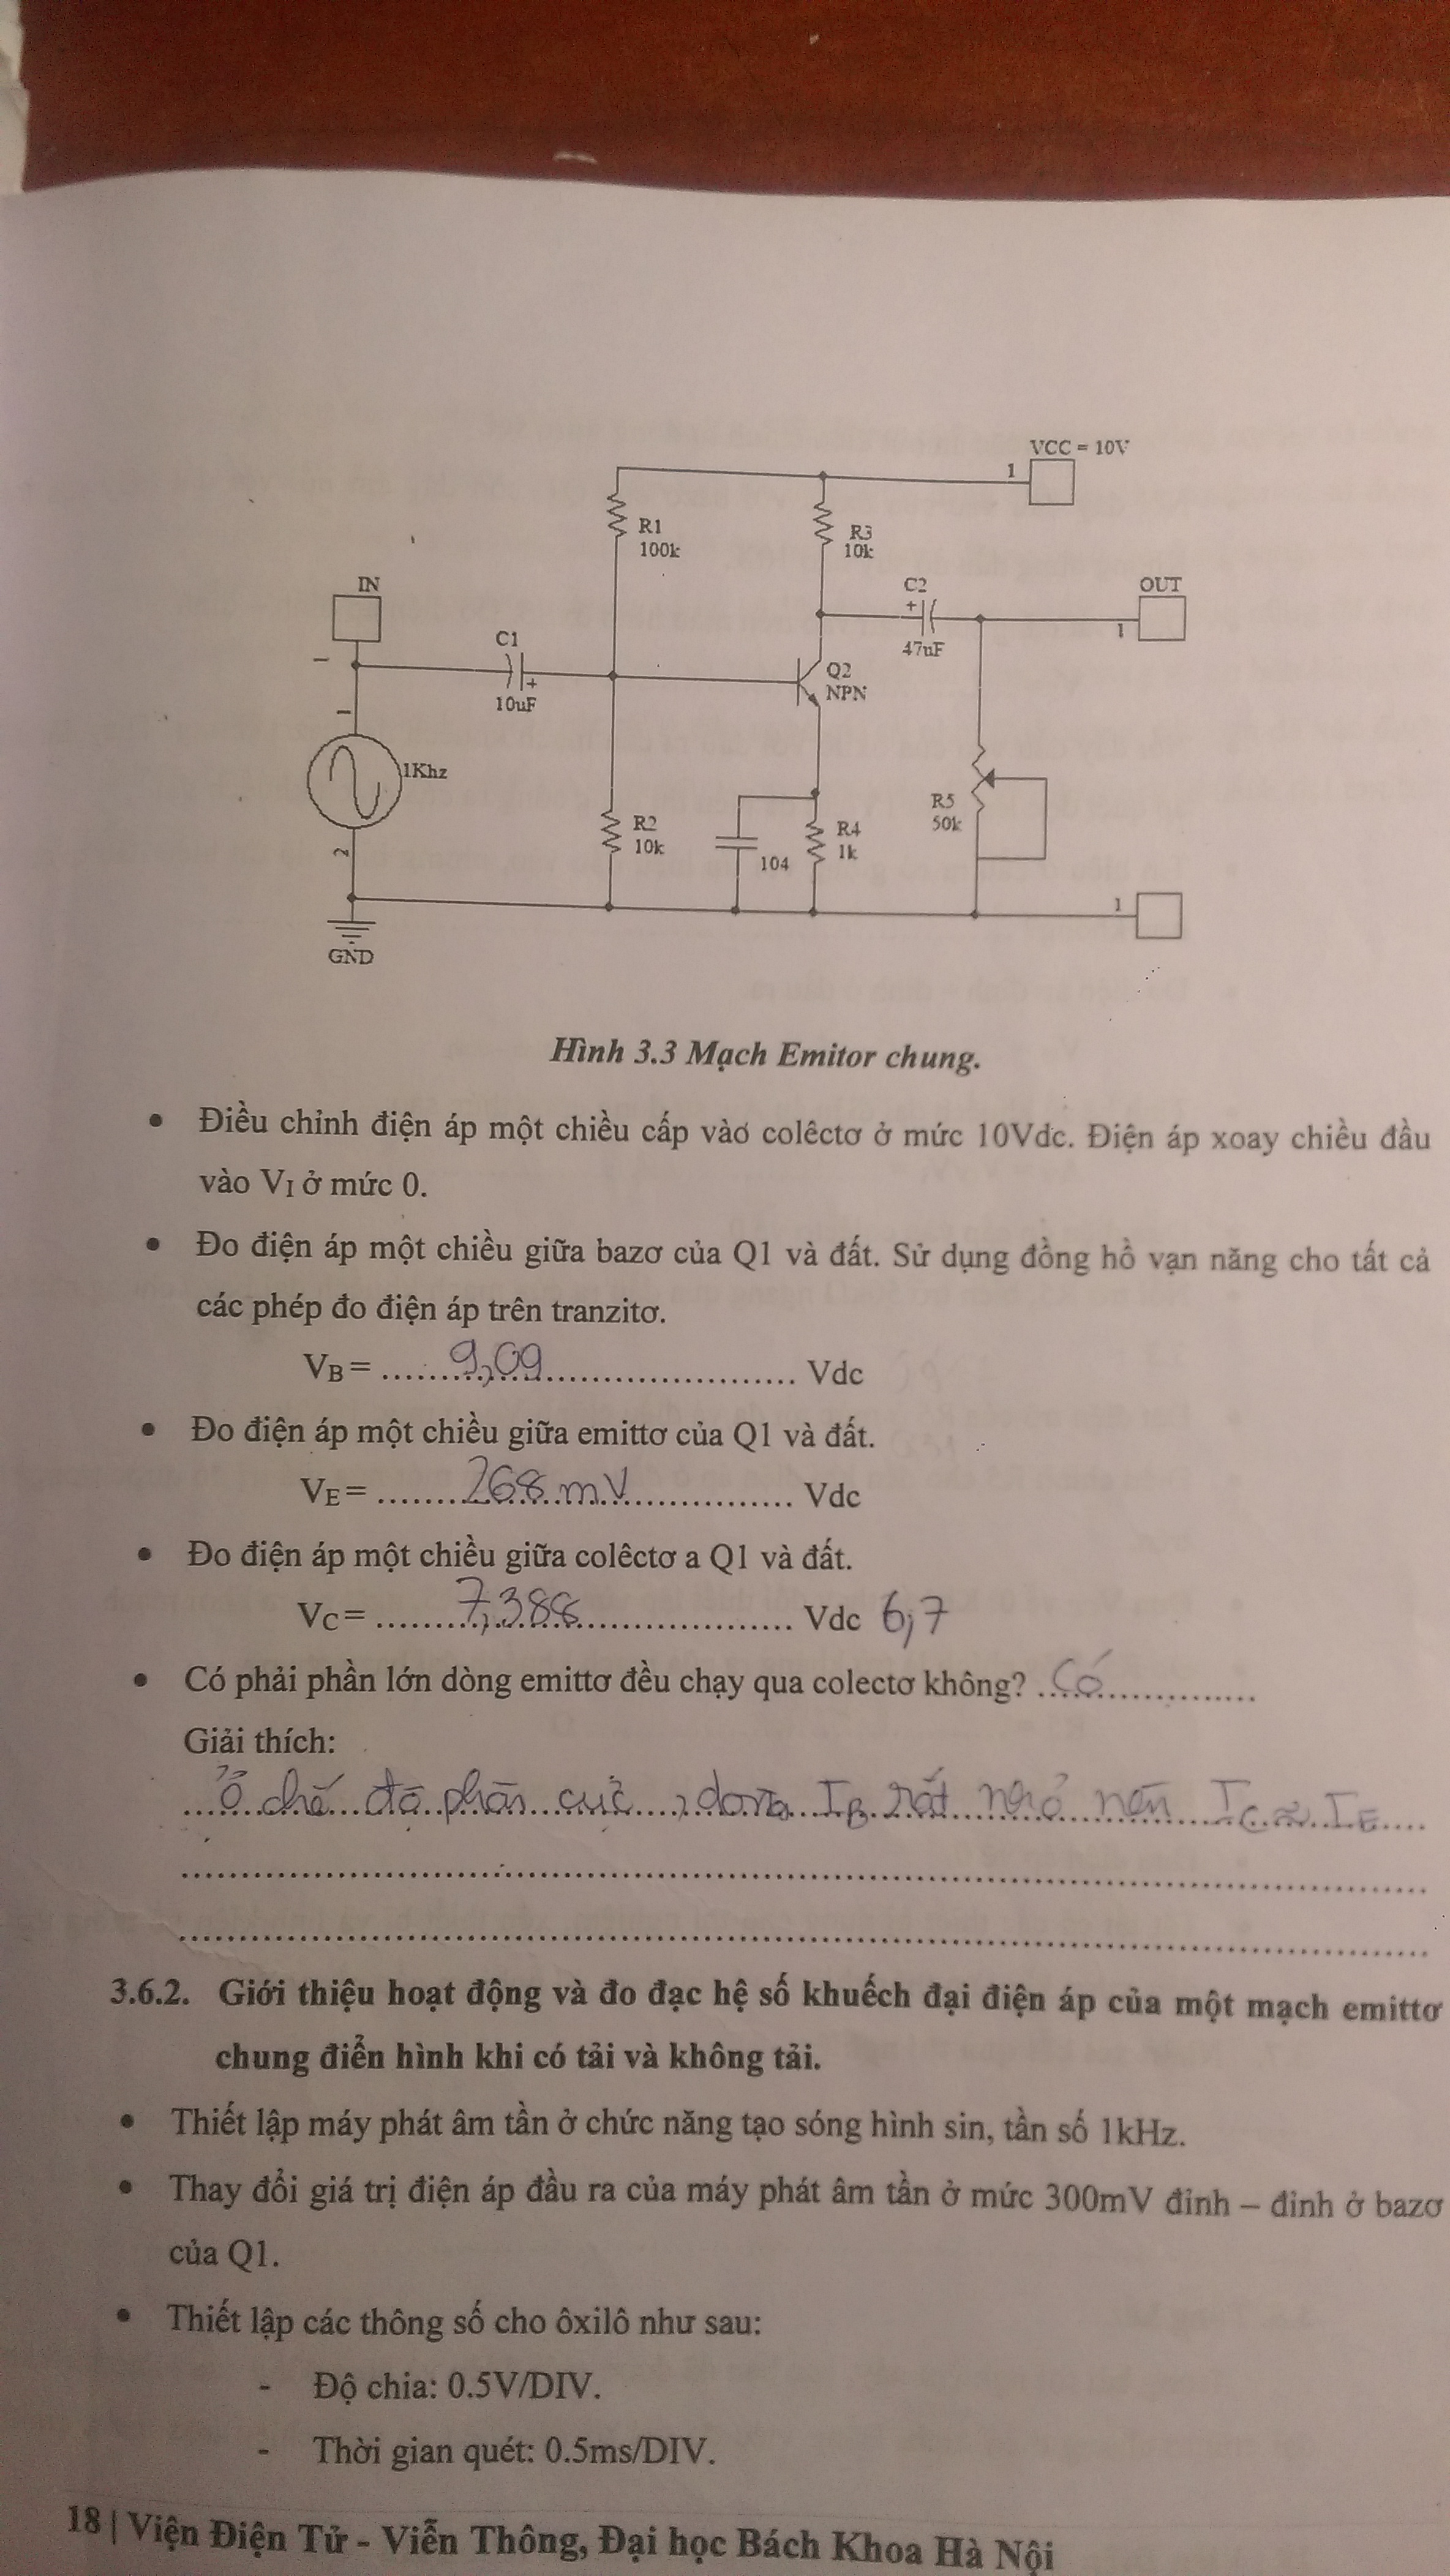 VCC = 10V
1
R1
100k
R3
10k
IN
C2
+
47uF
OUT
1
C1
+
10uF
Q2
NPN
1
1
1Khz
2
R2
10k
104
R4
1k
R5
50k
1
GND
Hình 3.3 Mạch Emitor chung.
• Điều chỉnh điện áp một chiều cấp vào colêctơ ở mức 10Vdc. Điện áp xoay chiều đầu
vào VI ở mức 0.
• Đo điện áp một chiều giữa bazơ của Q1 và đất. Sử dụng đồng hồ vạn năng cho tất cả
các phép đo điện áp trên tranzitơ.
VB = ..... 9,09 ..... Vdc
• Đo điện áp một chiều giữa emittơ của Q1 và đất.
VE = ..... 268 mV ..... Vdc
• Đo điện áp một chiều giữa colêctơ a Q1 và đất.
VC = ..... 7,388 ..... Vdc 6,7
• Có phải phần lớn dòng emittơ đều chạy qua colectơ không? ..... Có .....
Giải thích:
Ở chế độ phân cực, dòng IB rất nhỏ nên IC ≈ IE
3.6.2. Giới thiệu hoạt động và đo đạc hệ số khuếch đại điện áp của một mạch emittơ
chung điển hình khi có tải và không tải.
• Thiết lập máy phát âm tần ở chức năng tạo sóng hình sin, tần số 1kHz.
• Thay đổi giá trị điện áp đầu ra của máy phát âm tần ở mức 300mV đỉnh – đỉnh ở bazơ
của Q1.
• Thiết lập các thông số cho ôxilô như sau:
- Độ chia: 0.5V/DIV.
- Thời gian quét: 0.5ms/DIV.
18 | Viện Điện Tử - Viễn Thông, Đại học Bách Khoa Hà Nội